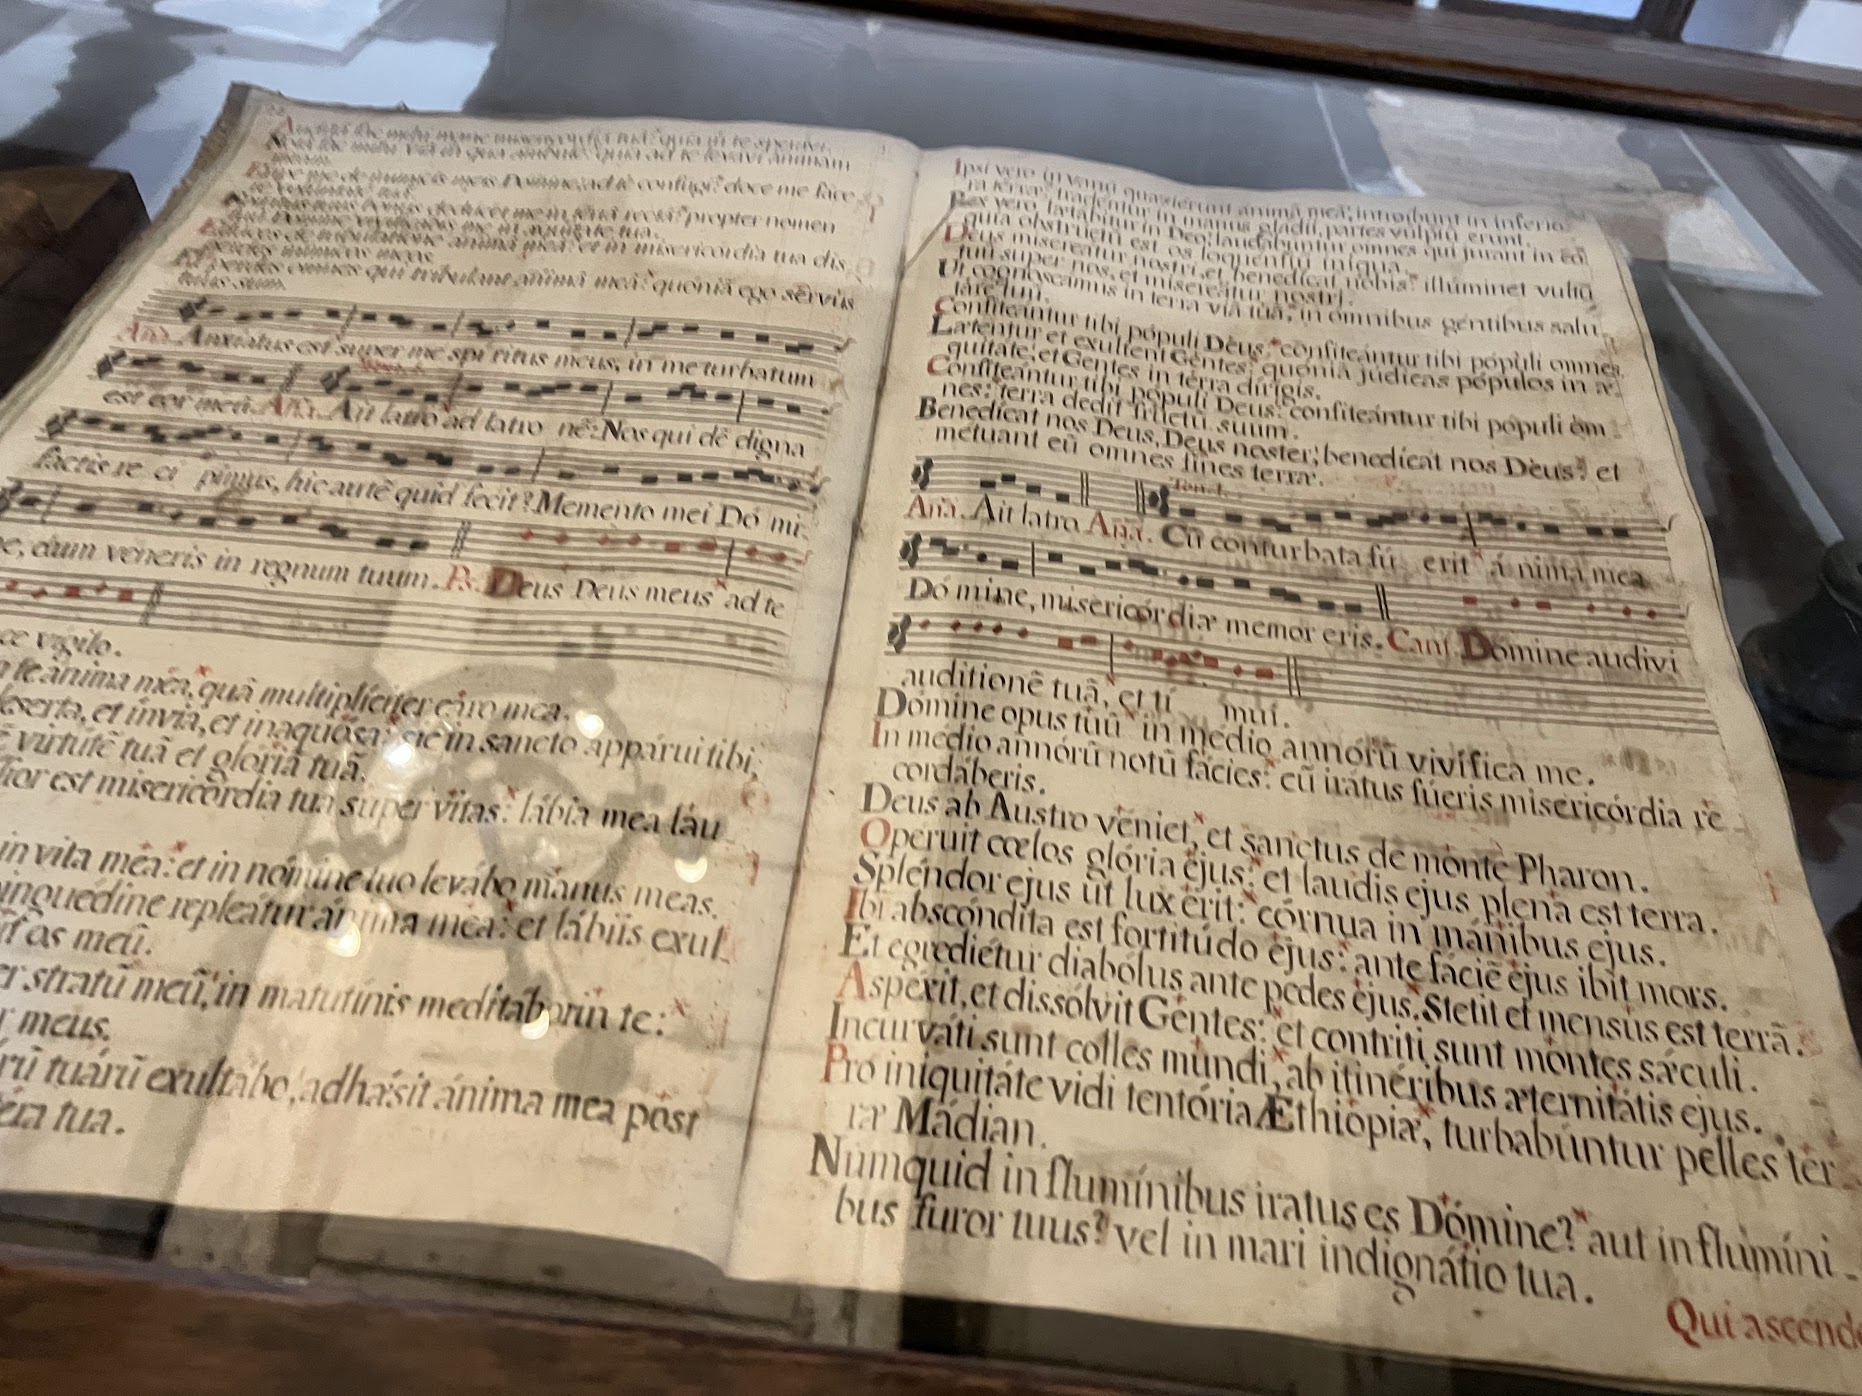 Auditã fac mihi mane misericordiã tuã: quia in te speravi.
Notã fac mihi viã in qua ambulẽ: quia ad te levavi animam
meam.
Eripe me de inimicis meis Domine, ad te confugi: doce me face
re voluntatẽ tuã
Spiritus tuus bonus deducet me in terrã rectã: propter nomen
tuũ Domine vivificabis me in æquitate tua.
Educes de tribulatione animã meã: et in misericordia tua dis
perdes inimicos meos.
Et perdes omnes qui tribulant animã meã: quoniã ego sẽrvus
tuus sum.
Anã. Anxiatus est super me spi ritus meus, in me turbatum
est cor meũ. Anã. Ait latro ad latro nẽ: Nos qui dẽ digna
factis re ci pimus, hic autẽ quid fecit? Memento mei Dó mi-
ne, dum véneris in regnum tuum. Ps. Deus Deus meus ad te
ce vigilo.
te ánima méa, quã multiplíciter cáro mea.
deserta, et ínvia, et inaquósa: sic in sancto appárui tibi,
virtútẽ tuã et glóriã tuã.
lior est misericórdia tua super vitas: lábia mea láu
in vita méa: et in nómine tuo levábo mánus meas.
pinguédine repleátur ánima méa: et lábiis exul
it os meũ.
er stratũ meũ, in matutínis meditábor in te:
r meus.
rũ tuárũ exultábo, adhæsit ánima mea post
téra tua.
Ipsi vero in vanũ quæsiérunt ánimã meã, introíbunt in inferio
ra térræ: tradéntur in manus gladii, partes vulpiũ erunt.
Rex vero lætábitur in Deo, laudabúntur omnes qui jurant in eo:
quia obstrúctũ est os loquéntiũ iníqua.
Deus misereátur nostri, et benedícat nobis: illúminet vultũ
suũ super nos, et misereátur nostri.
Ut cognoscámus in terra viã tuã, in ómnibus géntibus salu
táre tuũ.
Confiteántur tibi pópuli Dèus: confiteántur tibi pópuli omnes.
Læténtur et exultent Gentes: quóniã júdicas pópulos in æ
quitáte, et Gentes in térra dírigis.
Confiteántur tibi pópuli Deus: confiteántur tibi pópuli óm
nes: terra dedit frúctũ suum.
Benedícat nos Deus, Deus noster, benedícat nos Dèus: et
métuant eũ omnes fines terræ.
Anã. Ait latro Anã. Cũ conturbata fú erit á nima mea
Dó mine, misericór diæ memor eris. Cant. Dómine audívi
auditiónẽ tuã, et tí mui.
Dómine opus tũũ in médio annórũ vivífica me.
In medio annórũ notũ fácies: cũ irátus fúeris misericórdia re
cordáberis.
Deus ab Austro véniet, et sanctus de monte Pharon.
Operuit cœlos glória ejus: et laudis ejus plena est terra.
Spléndor ejus út lux érit: córnua in mánibus ejus.
Ibi abscóndita est fortitúdo ejus: ante fáciẽ ejus ibit mors.
Et egrediétur diabólus ante pedes ejus. Stetit et mensus est terrã.
Aspéxit, et dissólvit Géntes: et contríti sunt móntes sæculi.
Incurváti sunt colles mundi, ab itinéribus æternitátis ejus.
Pro iniquitáte vidi tentória Æthiópiæ, turbabúntur pelles ter-
ræ Mádian.
Numquid in flumínibus iratus es Dómine? aut in flumíni-
bus furor tuus? vel in mari indignátio tua.
Qui ascende